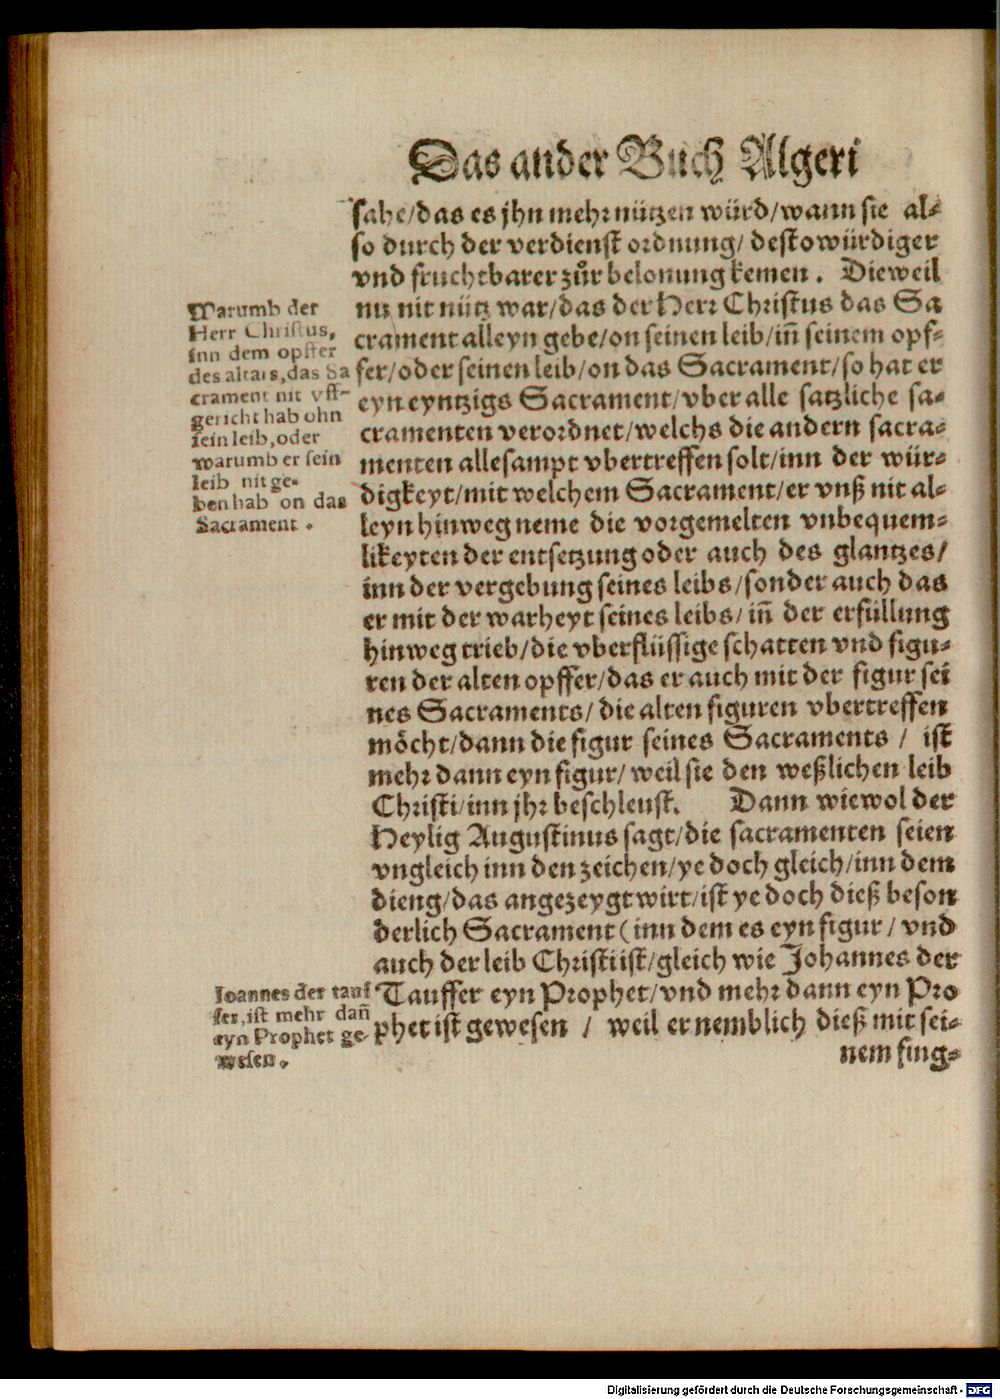 Das ander Buch Algeri
sahe/das es jhn mehr nützen würd/wann sie al⸗
so durch der verdienst ordnung/ desto würdiger
vnd fruchtbarer zůr belonung kemen. Dieweil
nu nit nütz war/das der Herr Christus das Sa
crament alleyn gebe/on seinen leib/iñ seinem opf⸗
fer/oder seinen leib/on das Sacrament/so hat er
eyn eyntzigs Sacrament/vber alle satzliche sa⸗
cramenten verordnet/welchs die andern sacra⸗
menten allesampt vbertreffen solt/inn der wür⸗
digkeyt/mit welchem Sacrament/er vnß nit al⸗
leyn hinweg neme die vorgemelten vnbequem⸗
likeyten der entsetzung oder auch des glantzes/
inn der vergebung seines leibs/sonder auch das
er mit der warheyt seines leibs/iñ der erfüllung
hinweg trieb/die vberflüssige schatten vnd figu⸗
ren der alten opffer/das er auch mit der figur sei
nes Sacraments/ die alten figuren vbertreffen
möcht/dann die figur seines Sacraments / ist
mehr dann eyn figur/weil sie den weßlichen leib
Christi/inn jhr beschleust. Dann wiewol der
Heylig Augustinus sagt/die sacramenten seien
vngleich inn den zeichen/ye doch gleich/inn dem
dieng/das angezeygt wirt/ist ye doch dieß beson
derlich Sacrament (inn dem es eyn figur / vnd
auch der leib Christi ist/gleich wie Johannes der
Tauffer eyn Prophet/vnd mehr dann eyn Pro
phet ist gewesen / weil er nemblich dieß mit sei⸗
nem fing⸗
Warumb der
Herr Christus,
inn dem opffer
des altars,das Sa
crament nit vff⸗
gericht hab ohn
sein leib,oder
warumb er sein
leib nit ge⸗
ben hab on das
Sacrament .
Ioannes der tauf
fer,ist mehr dañ
eyn Prophet ge⸗
wesen.
Digitalisierung gefördert durch die Deutsche Forschungsgemeinschaft - DFG